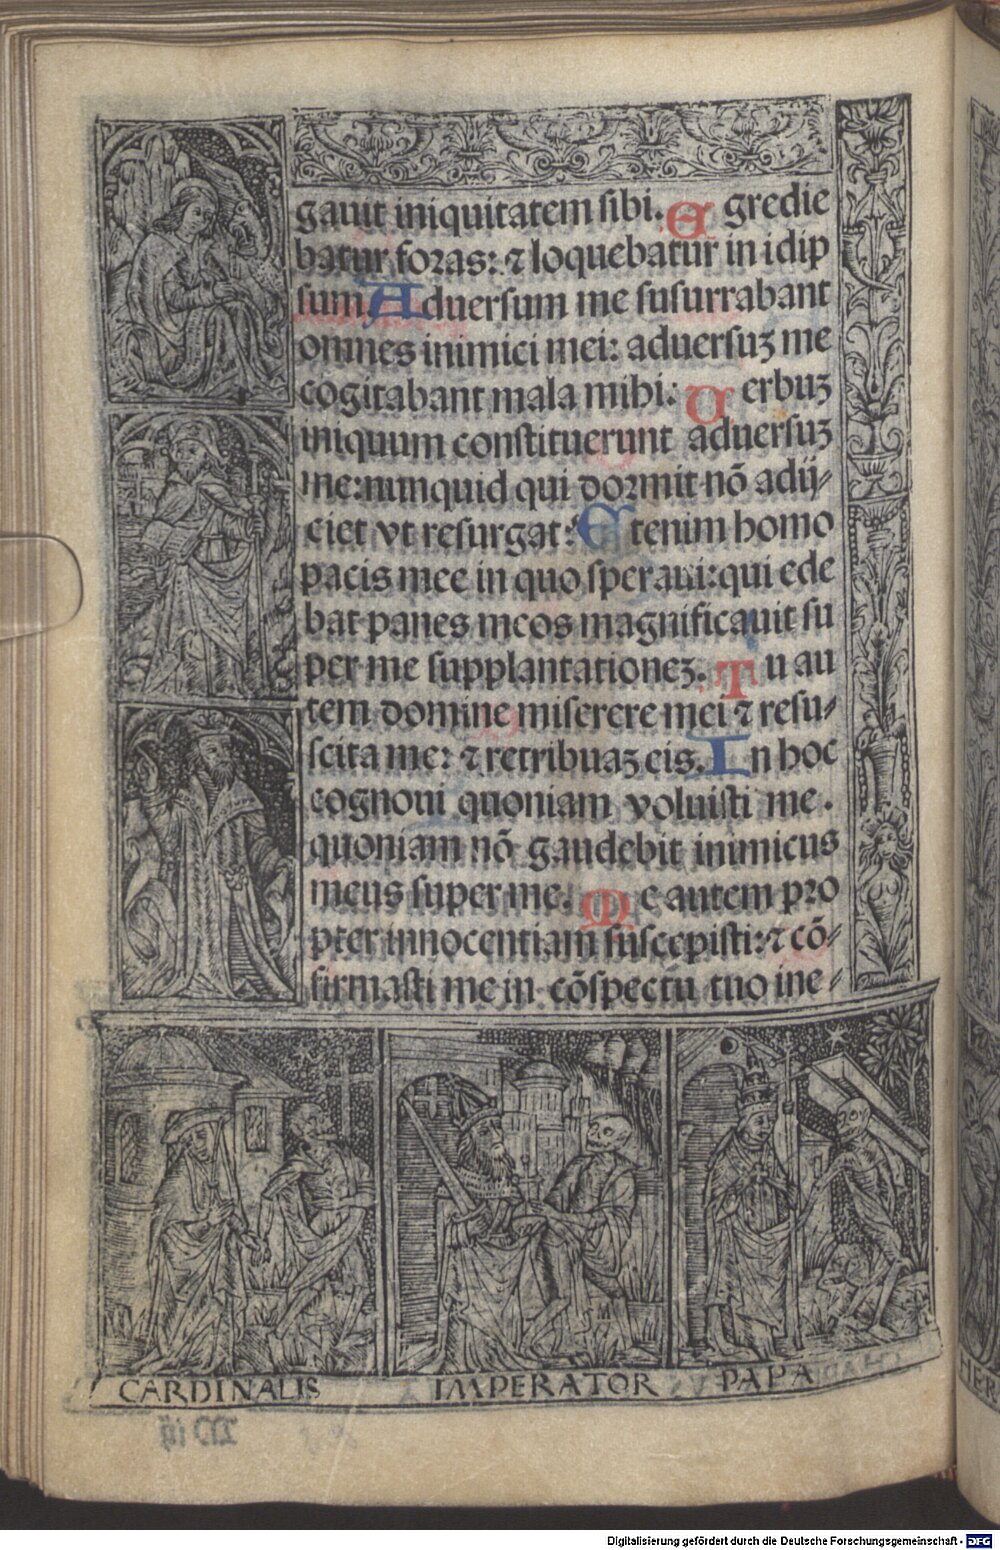 gauit iniquitatem sibi. Egredie
batur foras: ⁊ loquebatur in idip
sum. Aduersum me susurrabant
omnes inimici mei: aduersuꝫ me
cogitabant mala mihi: Uerbuꝫ
iniquum constituerunt aduersuꝫ
me: nunquid qui dormit nō adij⸗
ciet vt resurgat: Etenim homo
pacis mee in quo speraui: qui ede
bat panes meos magnificauit su
per me supplantationeꝫ. Tu au
tem domine miserere mei ⁊ resu⸗
scita me: ⁊ retribuaꝫ eis. In hoc
cognoui quoniam voluisti me.
quoniam nō gaudebit inimicus
meus super me. Me autem pro
pter innocentiam suscepisti: ⁊ cō⸗
firmasti me in cōspectu tuo ine⸗
CARDINALIS IMPERATOR PAPA
Digitalisierung gefördert durch die Deutsche Forschungsgemeinschaft - DFG